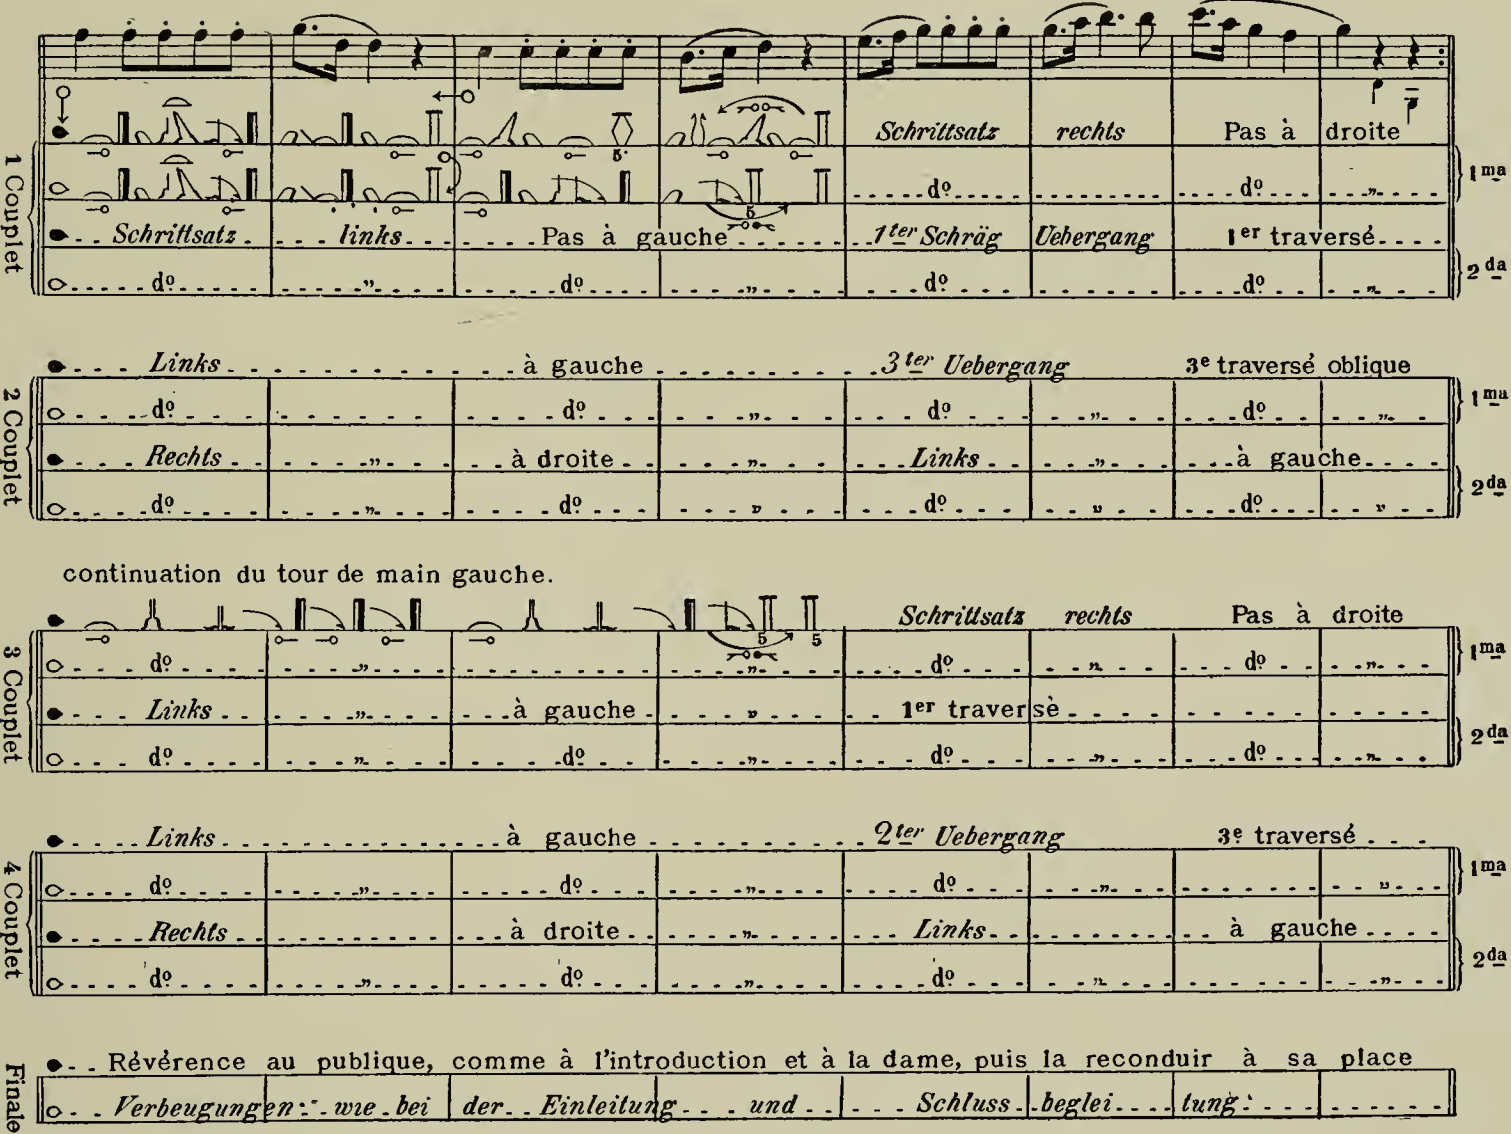 Schrittsatz rechts Pas à droite
1 Couplet
1ma
d⁰ d⁰ „
5
5
Schrittsatz links Pas à gauche 1ter Schräg Uebergang 1er traversé
2da
d⁰ „ d⁰ „ d⁰ d⁰ „
2 Couplet
Links à gauche 3ter Uebergang 3e traversé oblique
1ma
d⁰ d⁰ „ d⁰ „ d⁰ „
Rechts „ à droite „ Links „ à gauche
2da
d⁰ „ d⁰ „ d⁰ „ d⁰ „
continuation du tour de main gauche.
3 Couplet
Schrittsatz rechts Pas à droite
5 5
1ma
d⁰ „ „ d⁰ „ d⁰ „
Links „ à gauche „ 1er traversè
2da
d⁰ „ d⁰ „ d⁰ „ d⁰ „
4 Couplet
Links à gauche 2ter Uebergang 3e traversé
1ma
d⁰ „ d⁰ „ d⁰ „ „
Rechts à droite „ Links à gauche
2da
d⁰ „ d⁰ „ d⁰ „ „
Finale
Révérence au publique, comme à l'introduction et à la dame, puis la reconduir à sa place
Verbeugungen: wie bei der Einleitung und Schluss beglei tung: